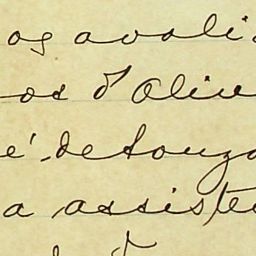 os avali
os d'Olive
e' de Souza
a assiste